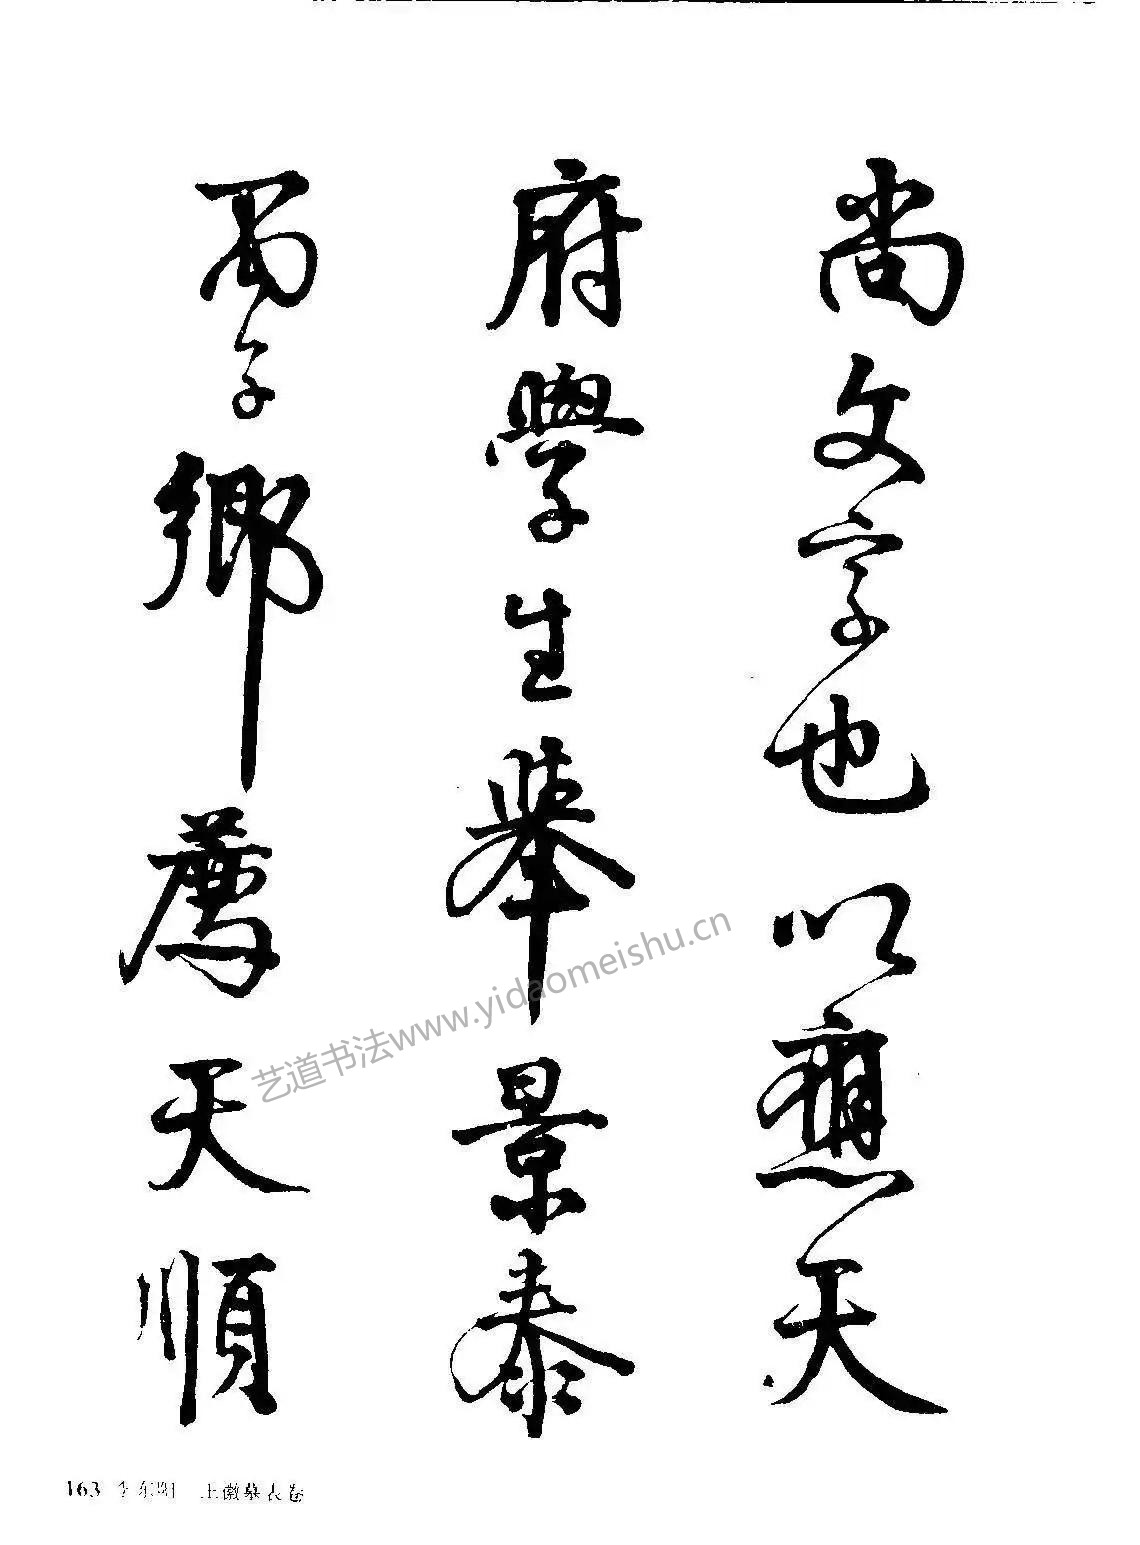 尚文字也以應天
府學生舉景泰
丙子鄉薦天順
艺道书法www.yidaomeishu.cn
163 李东阳 王徽墓表卷